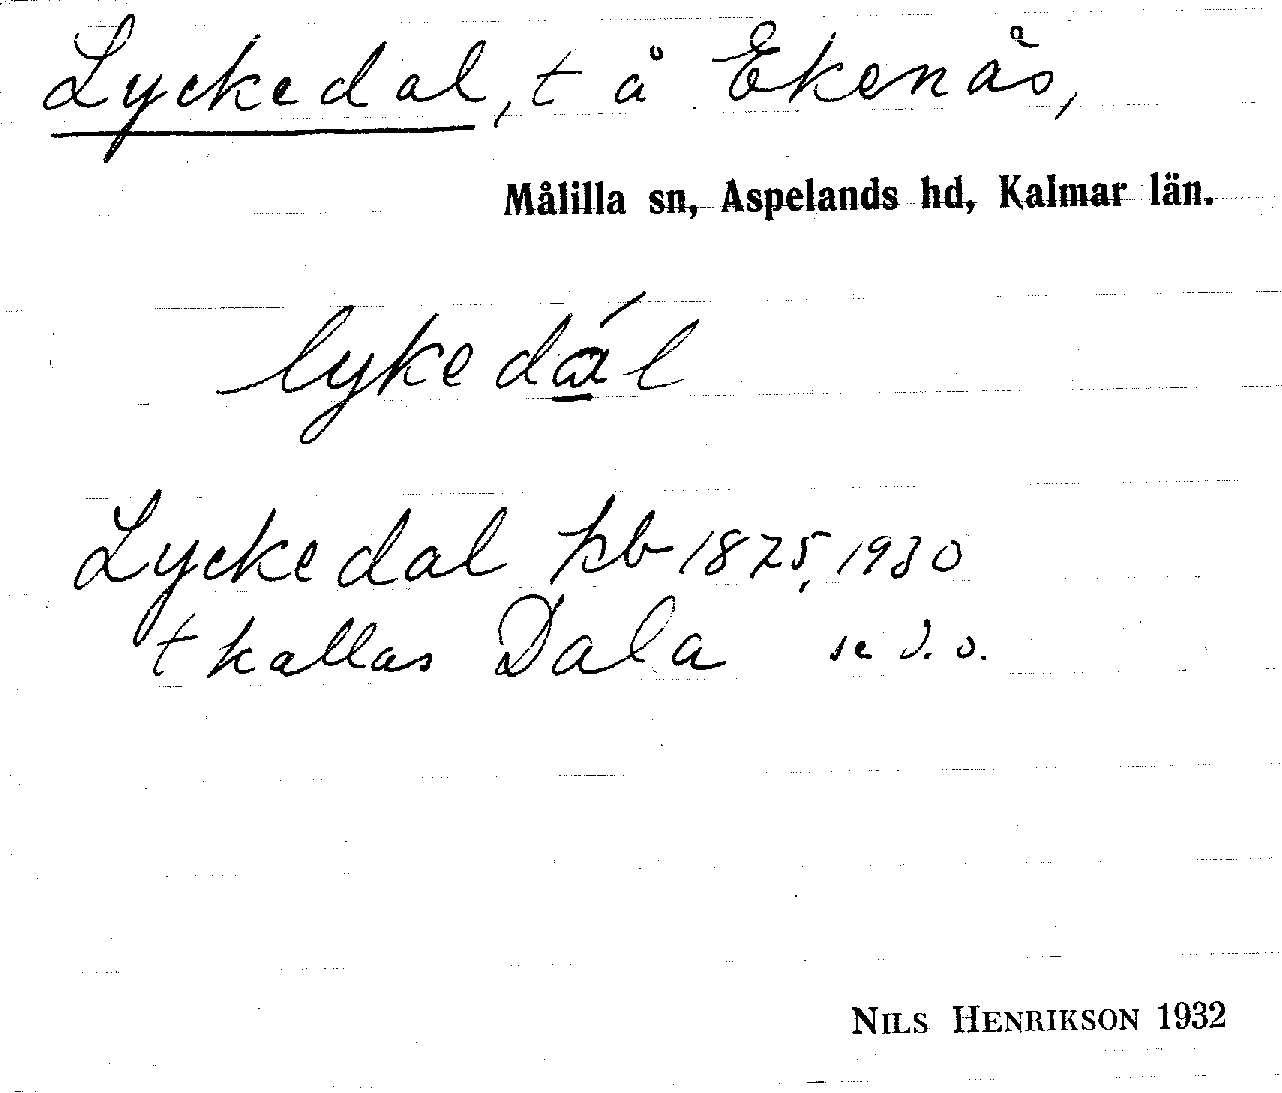 Lyckedal, t å Ekenås,
Målilla sn, Aspelands hd, Kalmar län.
lykedál
Lyckedal hb 1875, 1930
t kallas Dala se d. o.
NILS HENRIKSON 1932